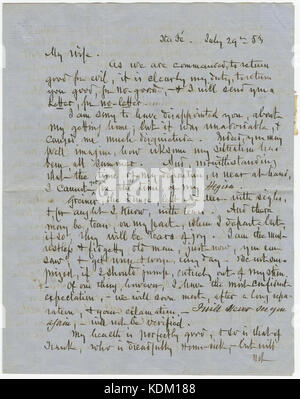 Sta Fé. July 29th 53
My Wife.
As we are commanded, to return
good for evil, it is clearly my duty, to return
you good, for no-good, & I will send you a
letter, for no-letter
I am sorry to have disappointed you, about
my getting home; but it was unavoidable, &
caused me much disquietude. Indeed you may
Well imagine how irksome my situation has
been all Summer. And, notwithstanding
that the time of my is near at hand,
I cannot the time of my
with sighs,
& for aught I Know, with And there
may be, tears, on my part, when I depart but
I am the most
restless & fidgetty old man, just now, you ever
saw & get any day. Be not sur-
prized, if I should jump, entirely out of my skin.
Of one thing, however, I have the most confident
expectation, we will soon meet, after a long sepa-
ration, & your exclamation I will never see you
again, will not be verified.
My health is perfectly good, & so is that of
Frank, who is dreadfully Home-sick, but will
not
alamy
Image ID: KDM188
www.alamy.com